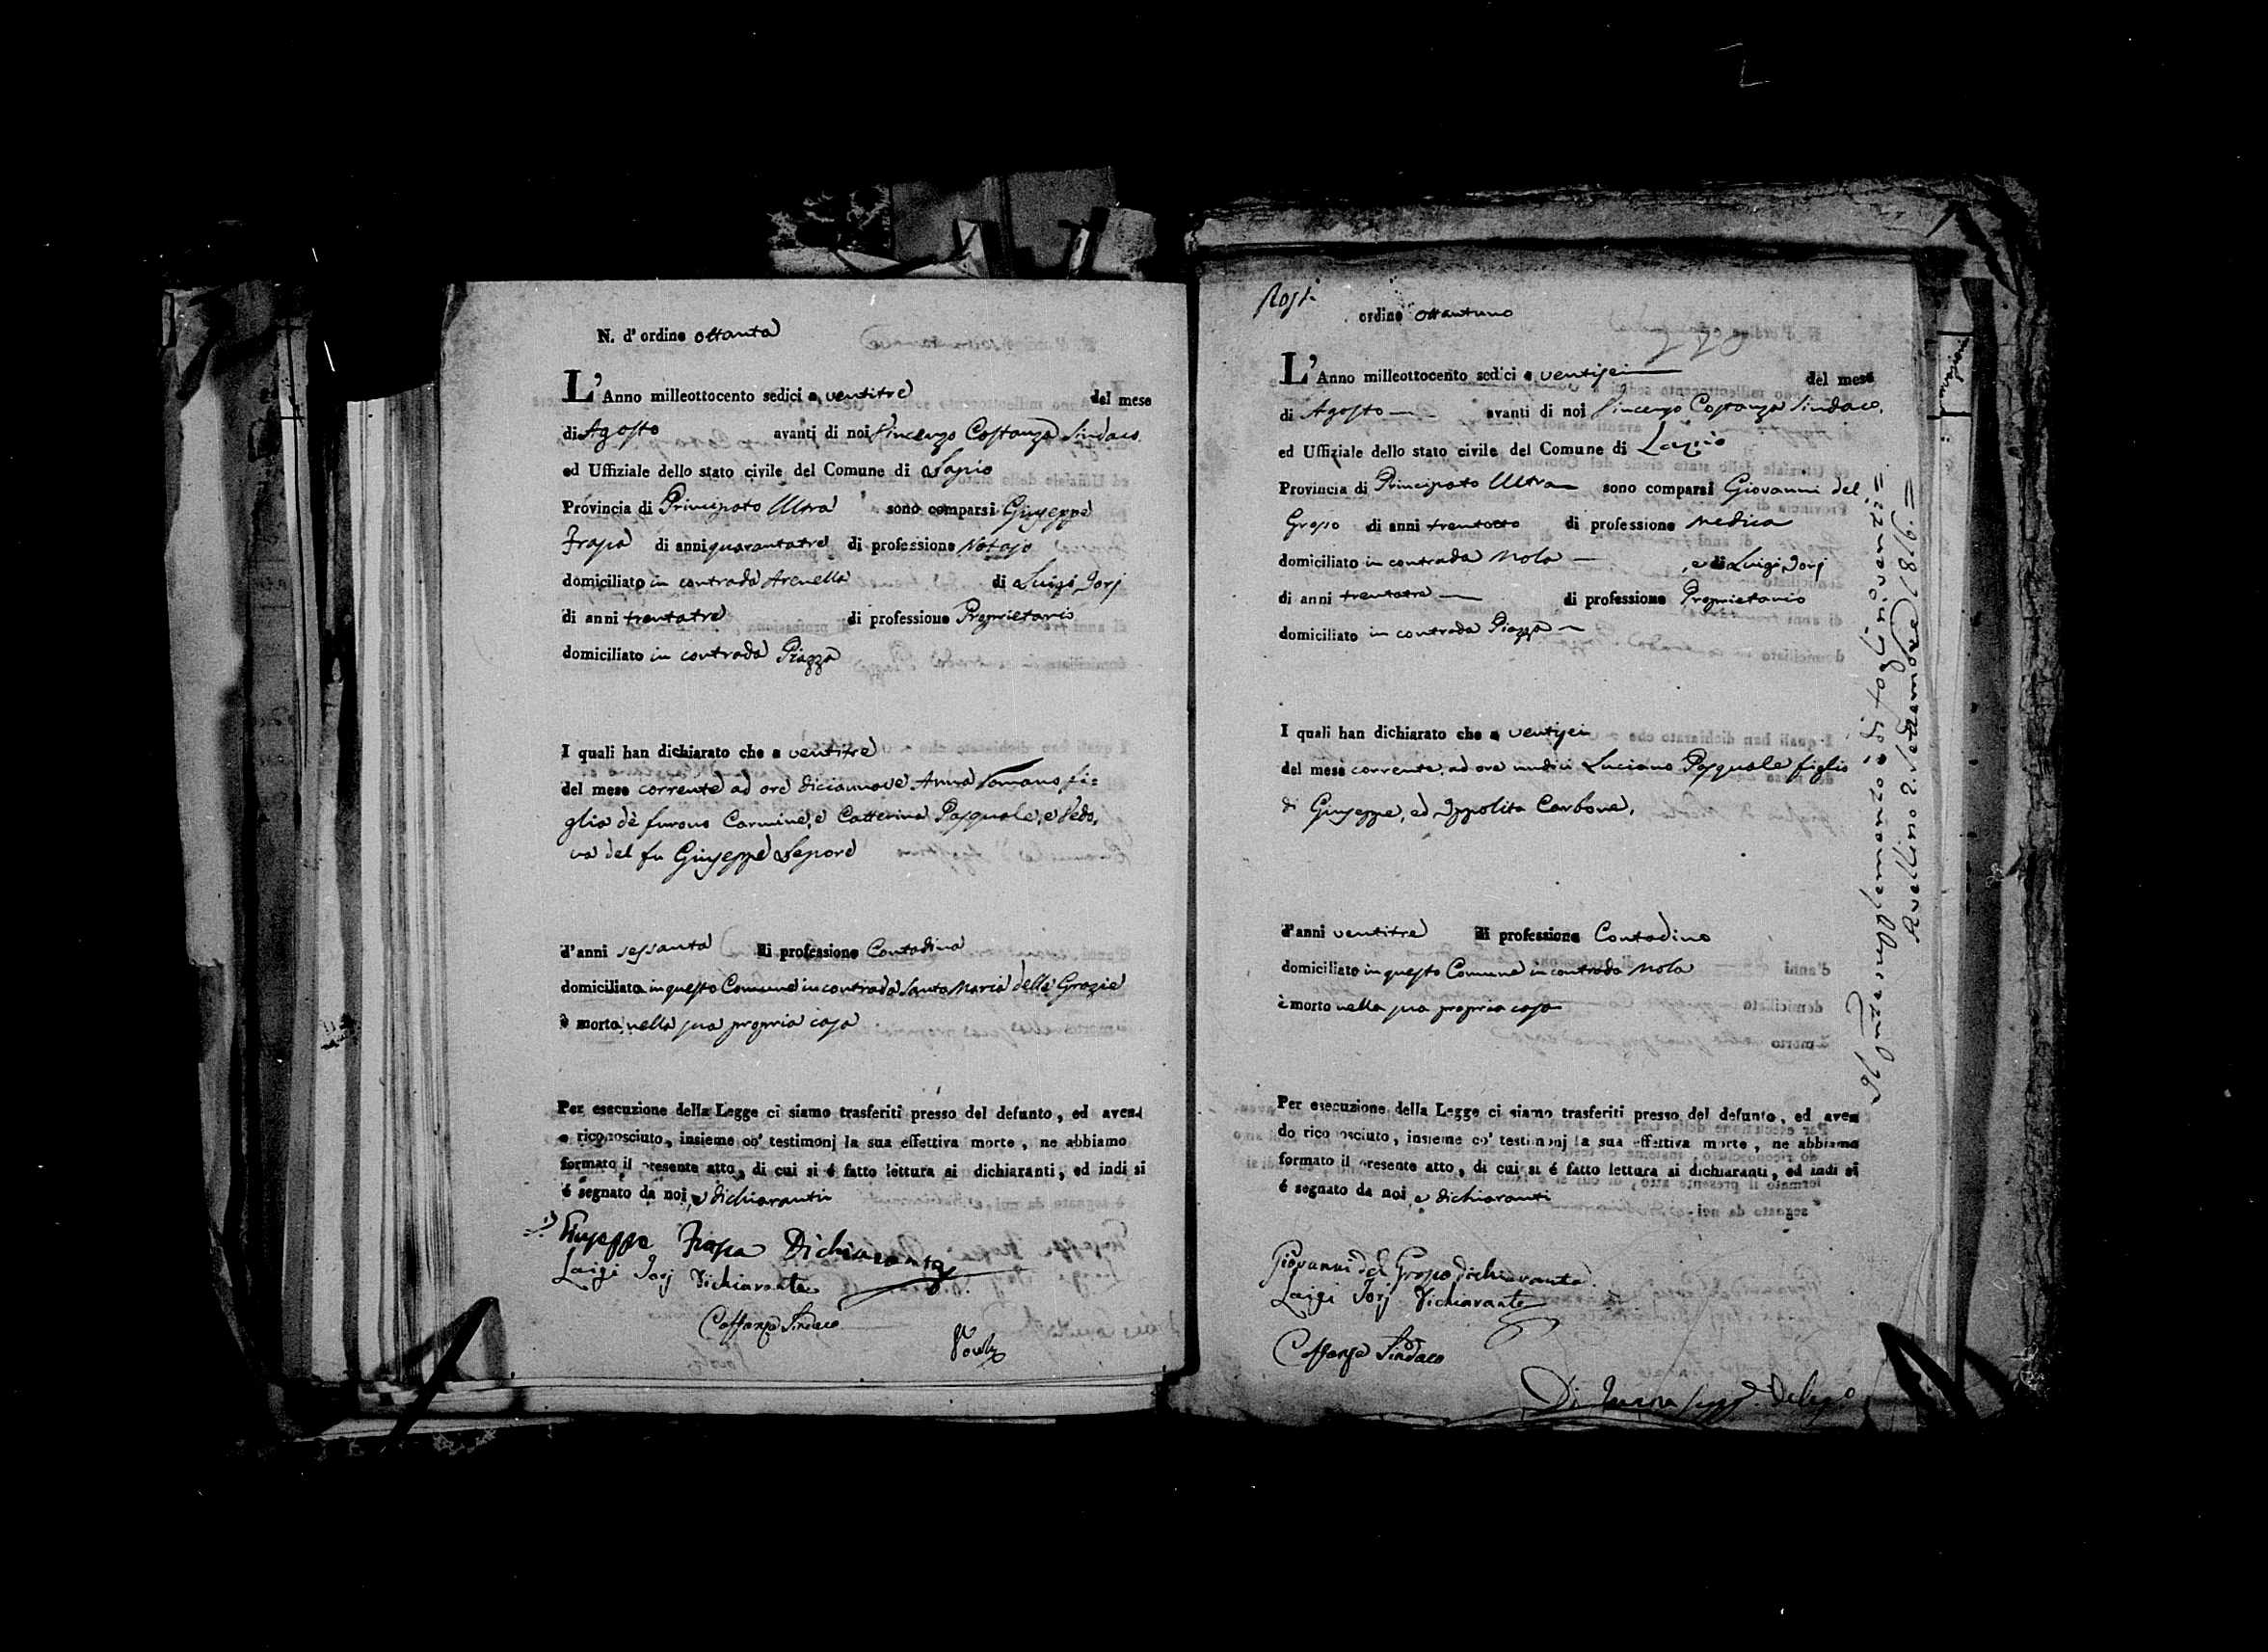 N. d' ordine ottanta
L' Anno milleottocento sedici a ventitre del mese
di Agosto avanti di noi Vincenzo Costanza Sindaco
ed Uffiziale dello stato civile del Comune di Lapio
Provincia di Principato Ultra sono comparsi Giuseppe
Trapa di anni quarantatre di professione Notajo
domiciliato in contrada Arenella di Luigi Jorj
di anni trentatre di professione Proprietario
domiciliato in contrada Piazza
I quali han dichiarato che a ventitre
del mese corrente ad ore diciannove Anna Romano fi=
glia dè furono Carmine, e Catterina Pasquale, e Vedo,
va del fu Giuseppe Lepore
d'anni sessanta di professione Contadina
domiciliata in questo Comune in contrada Santa Maria delle Grazie
è morta nella sua propria casa
Per esecuzione della Legge ci siamo trasferiti presso del defunto, ed aven
o riconosciuto, insieme co' testimonj la sua effettiva morte, ne abbiamo
formato il presente atto, di cui si é fatto lettura ai dichiaranti, ed indi si
é segnato da noi, e dichiaranti
Giuseppe Trapa Dichiarante
Luigi Jorj Dichiarante
Costanza Sindaco
ordine ottantuno
L' Anno milleottocento sedici a ventisei del mese
di Agosto avanti di noi Vincenzo Costanza Sindaco,
ed Uffiziale dello stato civile del Comune di Lapio
Provincia di Principato Ultra sono comparsi Giovanni del
Grosso di anni trentotto di professione Medico
domiciliato in contrada Mola e di Luigi Jorj
di anni trentatre di professione Proprietario
domiciliato in contrada Piazza
I quali han dichiarato che a ventisei
del mese corrente, ad ore undici Luciano Pasquale figlio
di Giuseppe, ed Ippolita Carbone,
d'anni ventitre di professione Contadino
domiciliato in questo Comune in contrada Mola
è morto nella sua propria casa
Per esecuzione della Legge ci siamo trasferiti presso del defunto, ed aven
do rico osciuto, insieme co' testimonj la sua effettiva morte, ne abbiamo
formato il presente atto, di cui si é fatto lettura ai dichiaranti, ed indi si
é segnato da noi e dichiaranti
Giovanni del Grosso dichiarante
Luigi Jorj Dichiarante
Costanza Sindaco
di fogli novanzei =
Avellino 2. Settembre 1816. =